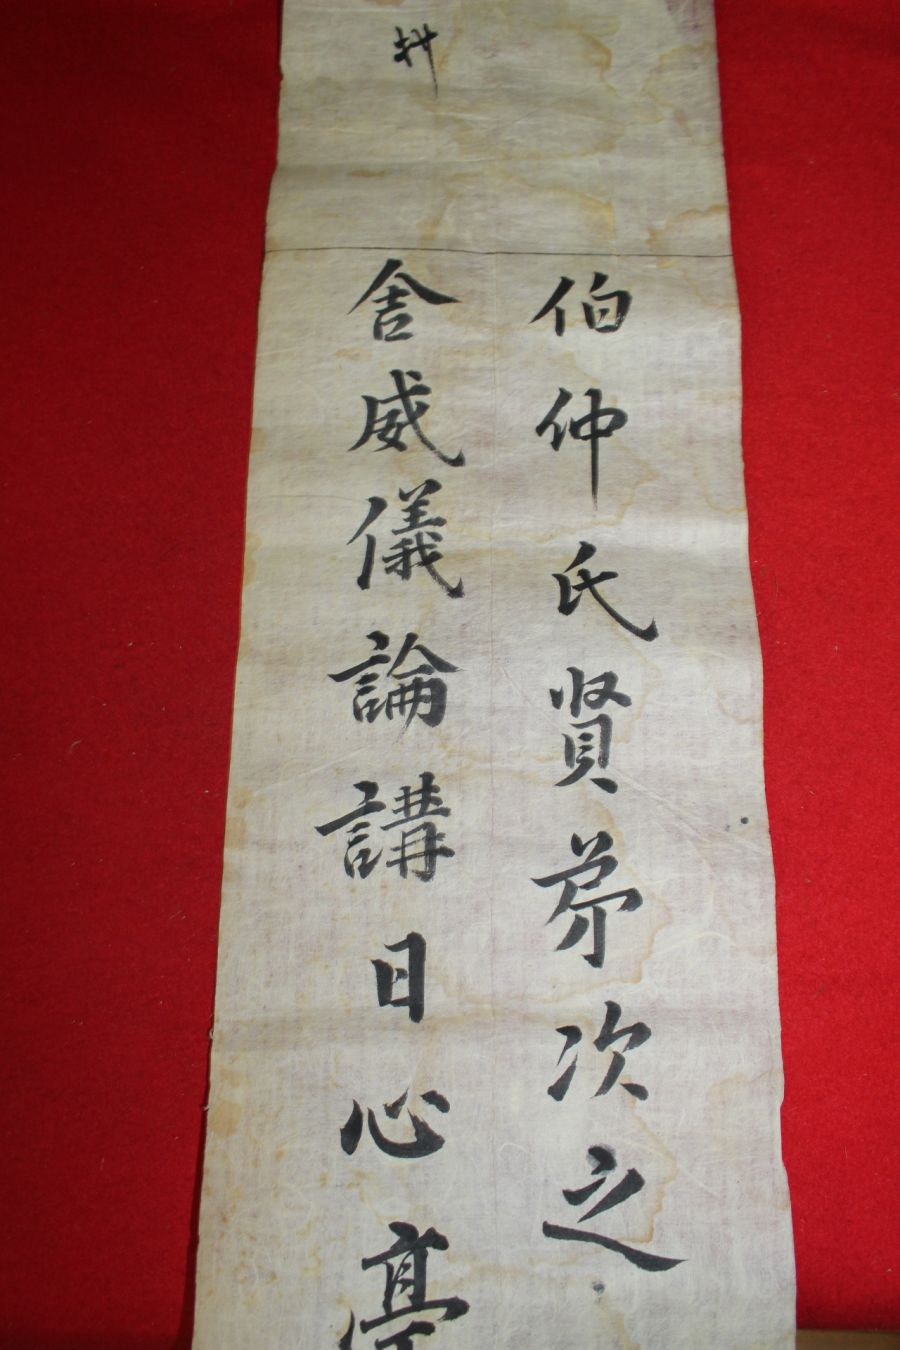 伯仲氏賢弟次之
舍威儀論講日心亭